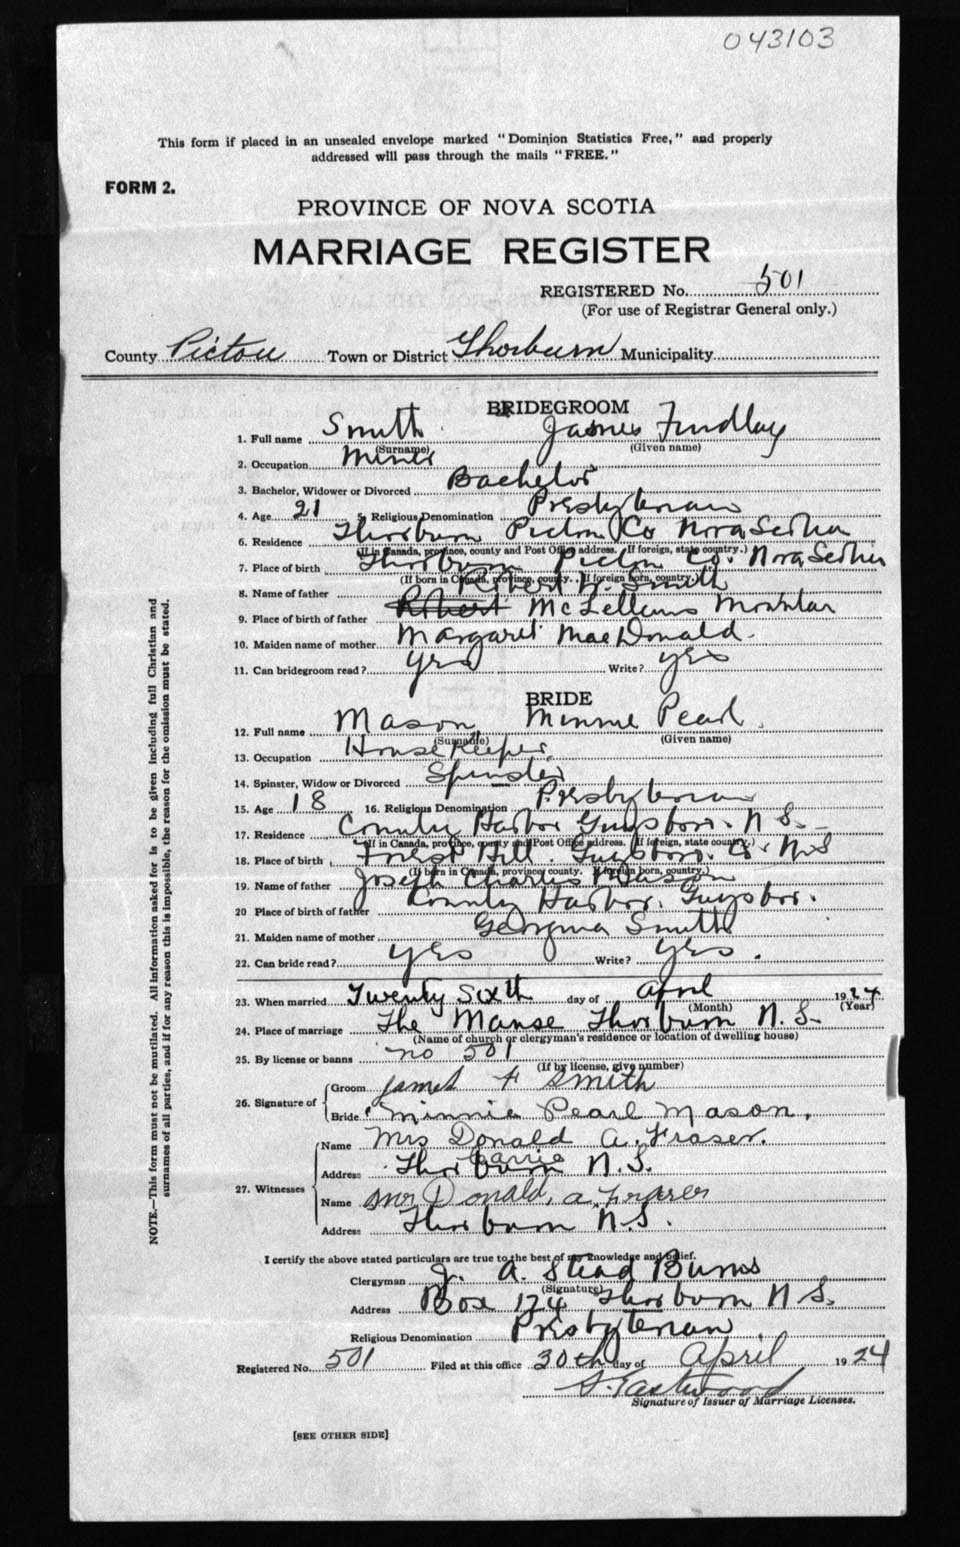 043103
This form if placed in an unsealed envelope marked "Dominion Statistics Free," and properly
addressed will pass through the mails "FREE."
FORM 2.
PROVINCE OF NOVA SCOTIA
MARRIAGE REGISTER
REGISTERED No. 501
(For use of Registrar General only.)
County Pictou Town or District Thorburn Municipality
BRIDEGROOM
1. Full name Smith James Findlay
(Surname) (Given name)
2. Occupation Miner
3. Bachelor, Widower or Divorced Bachelor
4. Age 21 5. Religious Denomination Presbyterian
6. Residence Thorburn Pictou Co Nova Scotia
(If in Canada, province, county and Post Office address. If foreign, state country.)
7. Place of birth Thorburn Pictou Co. Nova Scotia
(If born in Canada, province, county. If foreign born, country.)
8. Name of father Robert H. Smith
9. Place of birth of father Robert McLellans Mountain
10. Maiden name of mother Margaret MacDonald.
11. Can bridegroom read? yes Write? yes
BRIDE
12. Full name Mason Minnie Pearl.
(Surname) (Given name)
13. Occupation House Keeper.
14. Spinster, Widow or Divorced Spinster
15. Age 18 16. Religious Denomination Presbyterian
17. Residence Country Harbor Guysboro. N S.
(If in Canada, province, county and Post Office address. If foreign, state country.)
18. Place of birth Forest Hill. Guysboro. Co. N S
(If born in Canada, province county. If foreign born, country.)
19. Name of father Joseph Charles Mason
20 Place of birth of father Country Harbor. Guysbor.
21. Maiden name of mother Georgina Smith
22. Can bride read? yes Write? yes.
23. When married Twenty Sixth day of April 1924
(Month) (Year)
24. Place of marriage The Manse Thorburn N. S.
(Name of church or clergyman's residence or location of dwelling house)
25. By license or banns no 501
(If by license, give number)
26. Signature of Groom James F Smith
Bride Minnie Pearl Mason.
27. Witnesses Name Mrs Donald A. Fraser.
Carrie
Address Thorburn N.S.
Name Mr Donald, a, Fraser
Address Thorburn N.S.
I certify the above stated particulars are true to the best of my knowledge and belief.
Clergyman J. A. Stead Burns
(Signature)
Address Box 174 Thorburn N S.
Religious Denomination Presbyterian.
Registered No. 501 Filed at this office 30th day of April 1924
Eastwood
Signature of Issuer of Marriage Licenses.
[SEE OTHER SIDE]
NOTE.—This form must not be mutilated. All information asked for is to be given including full Christian and
surnames of all parties, and if for any reason this is impossible, the reason for the omission must be stated.